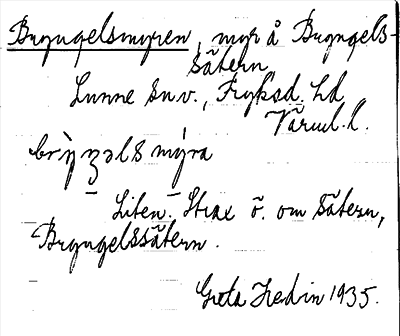 Bryngelsmyren, myr å Bryngels-
sätern
Lunne sn v., Fryksd. hd
Värml. l.
brỳŋəls mýra
Liten. Strax ö. om sätern,
Bryngelssätern.
Greta Hedin 1935.